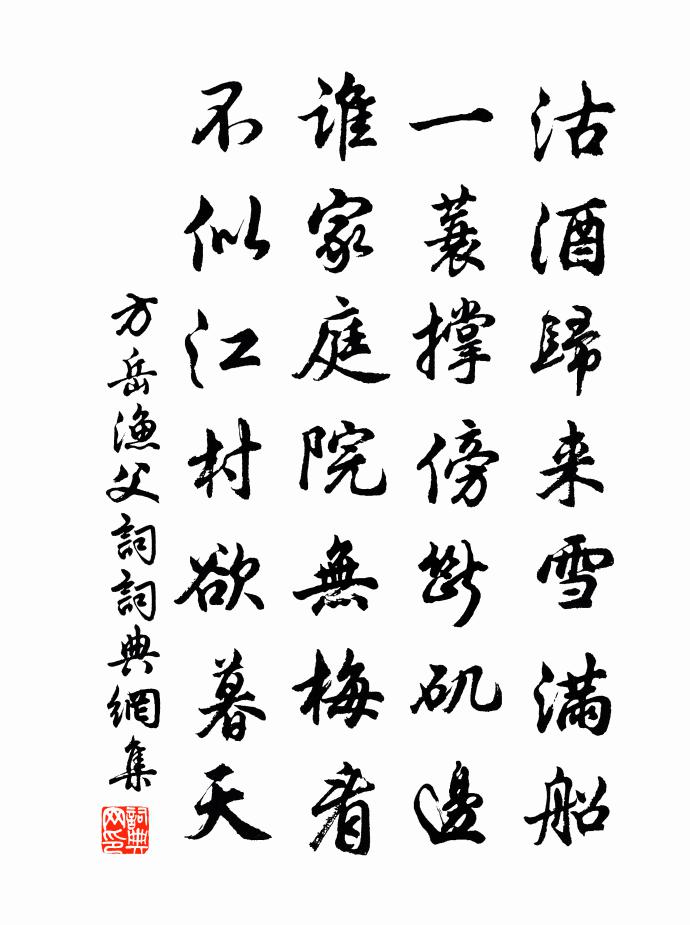 沽酒歸来雪滿船
一蓑撐傍斷矶邊
誰家庭院無梅看
不似江村欲暮天
方岳漁父詞詞典網集
詞典网印